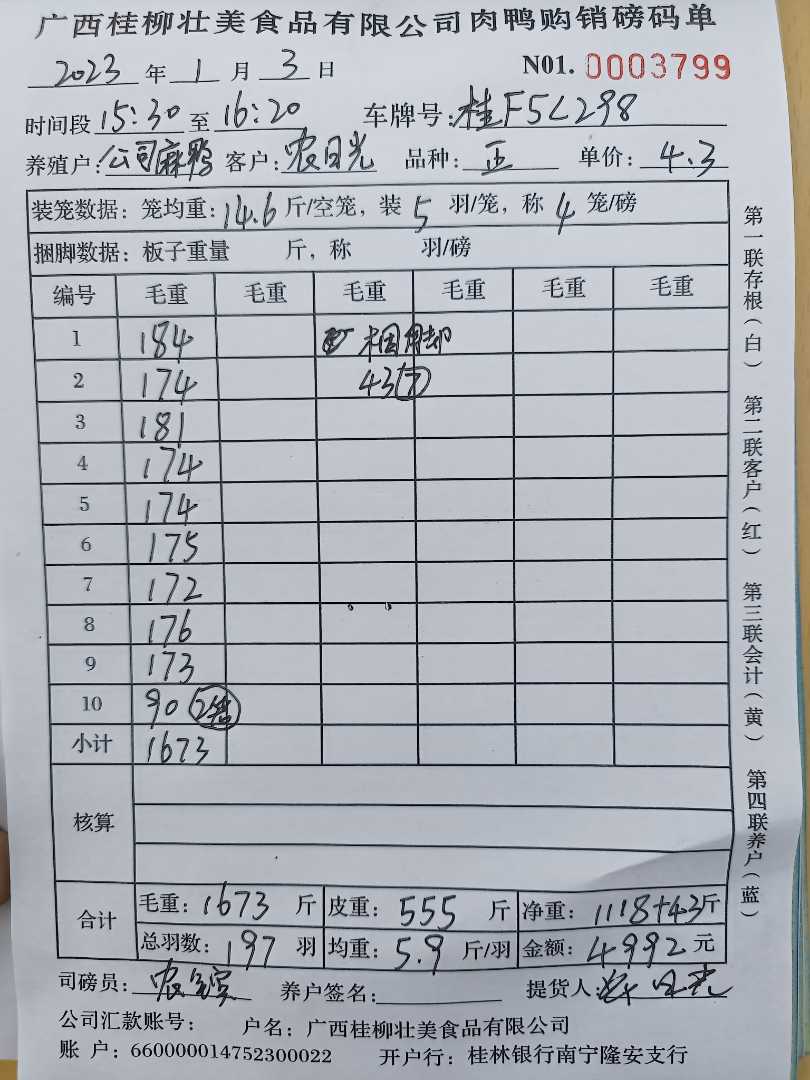 广西桂柳壮美食品有限公司肉鸭购销磅码单
2023 年 1 月 3 日 N01. 0003799
时间段 15:30 至 16:20 车牌号: 桂F5L298
养殖户: 公司麻鸭 客户: 农日光 品种: 正 单价: 4.3
装笼数据: 笼均重: 14.6 斤/空笼, 装 5 羽/笼, 称 4 笼/磅
捆脚数据: 板子重量 斤, 称 羽/磅
编号 毛重 毛重 毛重 毛重 毛重 毛重
1 184 捆脚
2 174 43
3 181
4 174
5 174
6 175
7 172
8 176
9 173
10 90 2笼
小计 1673
核算
合计 毛重: 1673 斤 皮重: 555 斤 净重: 1118+43斤
总羽数: 197 羽 均重: 5.9 斤/羽 金额: 4992 元
司磅员: 养户签名: 提货人: 农日光
公司汇款账号: 户名: 广西桂柳壮美食品有限公司
账 户: 660000014752300022 开户行: 桂林银行南宁隆安支行
第一联存根(白) 第二联客户(红) 第三联会计(黄) 第四联养户(蓝)